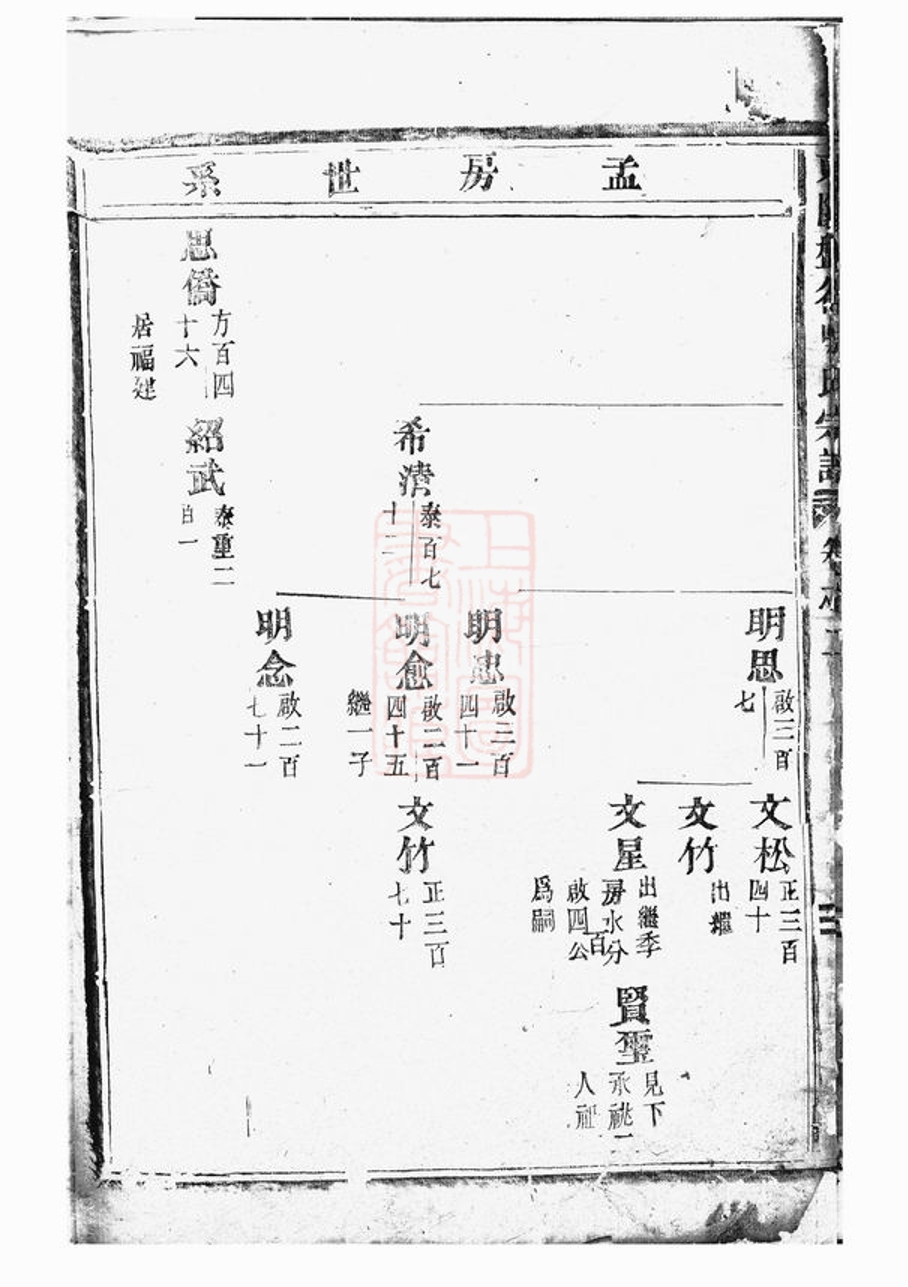 孟房世系
明思
啟三百
七
文松
正三百
四十
文竹
出繼
文星
出繼季
房水分
啟四百公
爲嗣
賢璽
見下
承祧二
人祉
明忠
啟三百
四十一
希濟
泰百七
十二
明愈
啟二百
四十五
繼一子
文竹
正三百
七十
明念
啟二百
七十一
思僑
方百四
十六
居福建
紹武
泰重二
百一
宗譜
上海圖書館藏